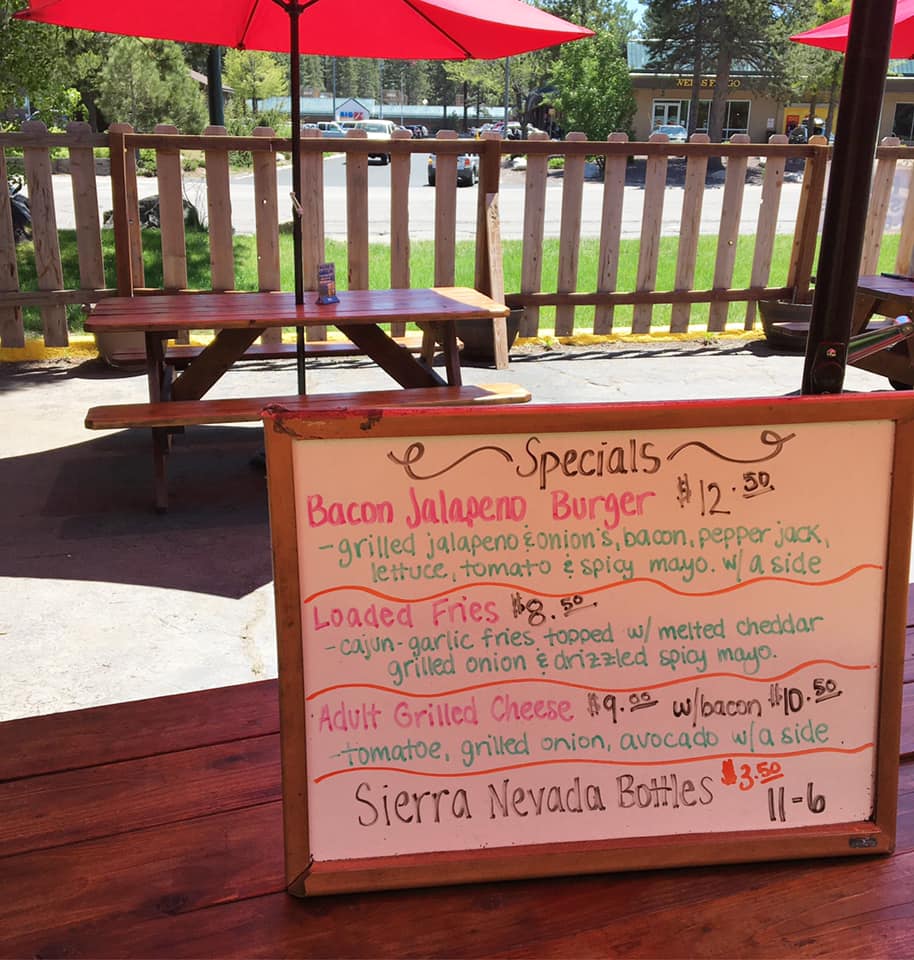 WELLS FARGO
BIG
Specials
Bacon Jalapeno Burger $12.50
-grilled jalapeno & onion's, bacon, pepper jack,
lettuce, tomato & spicy mayo. w/ a side
Loaded Fries $8.50
-cajun-garlic fries topped w/ melted cheddar
grilled onion & drizzled spicy mayo.
Adult Grilled Cheese $9.00 w/bacon $10.50
-tomatoe, grilled onion, avocado w/a side
Sierra Nevada Bottles $3.50
11-6